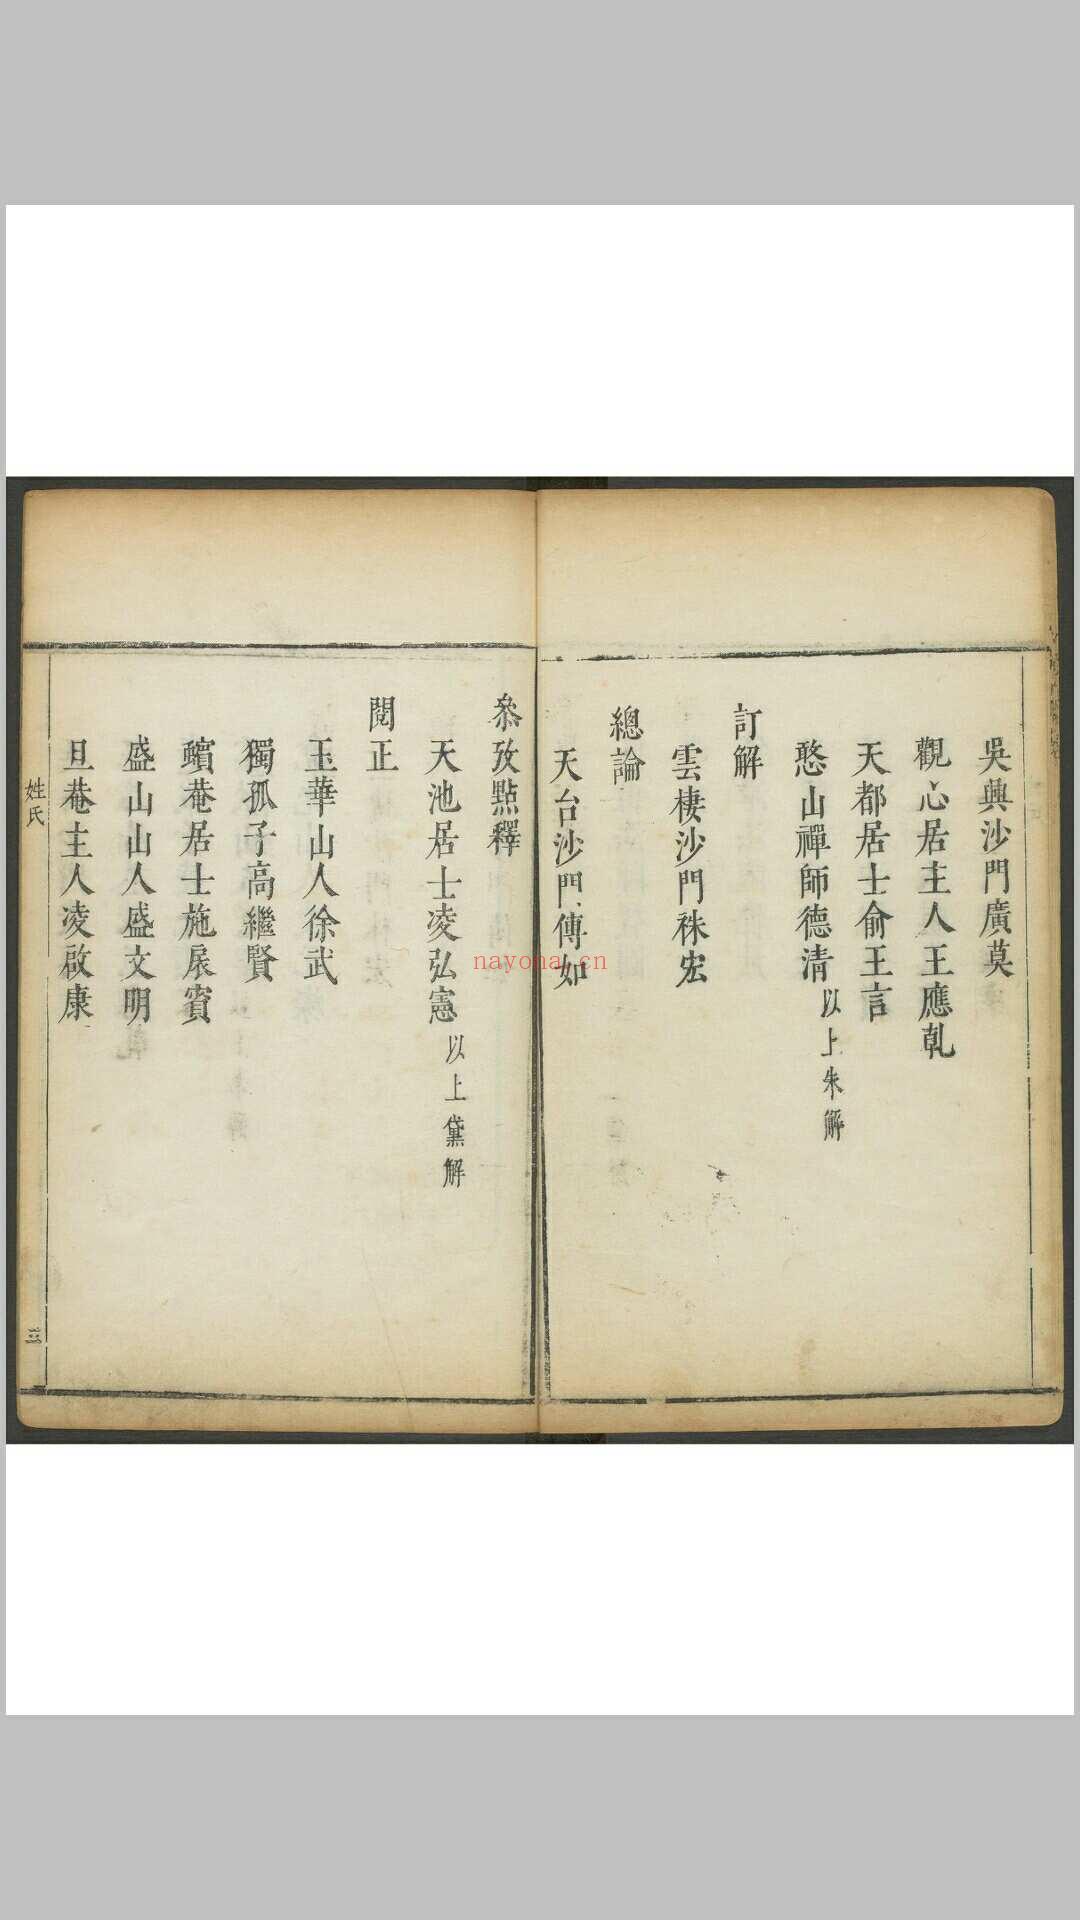 吳興沙門廣莫
觀心居主人王應乹
天都居士俞王言
憨山禪師德清以上朱解
訂解
雲棲沙門袾宏
總論
天台沙門傳如
叅攷點釋
天池居士凌弘憲以上黛解
閱正
玉華山人徐武
獨孤子高繼賢
蠙菴居士施扆賓
盛山山人盛文明
旦菴主人凌啟康
姓氏
三
nayona.cn